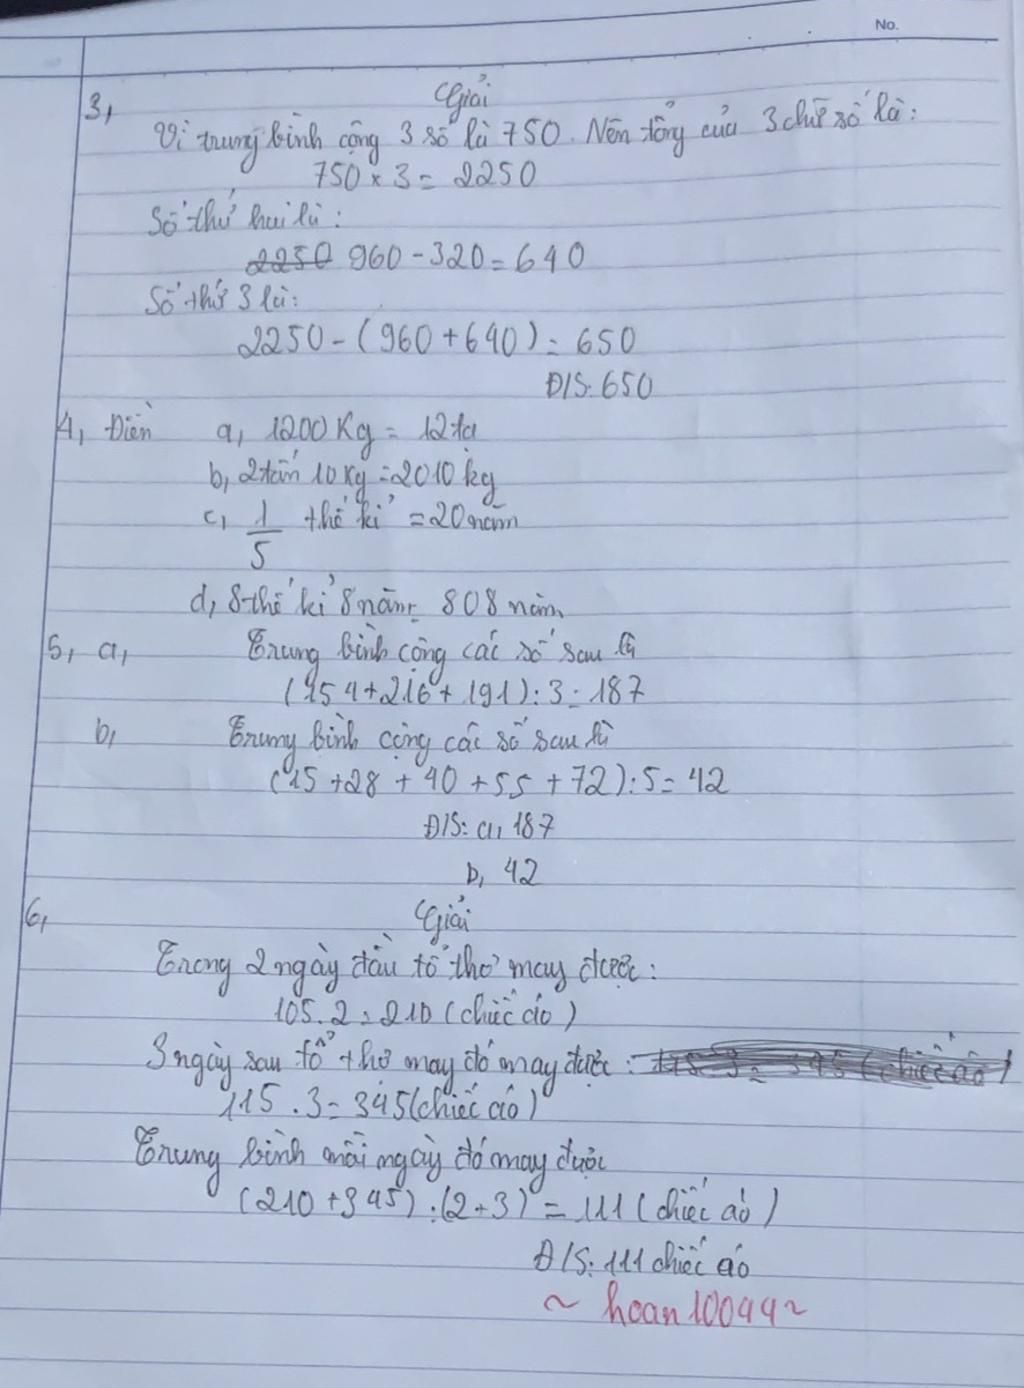 No.
3, Giải
Vì trung bình cộng 3 số là 750. Nên tổng của 3 chữ số là:
750 x 3 = 2250
Số thứ hai là:
2250 960 - 320 = 640
Số thứ 3 là:
2250 - (960 + 640) = 650
Đ/S: 650
4, Điền a, 1200 Kg = 12 tạ
b, 2 tấn 10 Kg = 2010 kg
c, 1/5 thế kỉ = 20 năm
d, 8 thế kỉ 8 năm = 808 năm
5, a, Trung bình cộng các số sau là
(154 + 216 + 191) : 3 = 187
b, Trung bình cộng các số sau là
(15 + 28 + 40 + 55 + 72) : 5 = 42
Đ/S: a, 187
b, 42
6, Giải
Trong 2 ngày đầu tổ thợ may được:
105 . 2 = 210 (chiếc áo)
3 ngày sau tổ thợ may đó may được:
115 . 3 = 345 (chiếc áo)
Trung bình mỗi ngày đó may được
(210 + 345) : (2 + 3) = 111 (chiếc áo)
Đ/S: 111 chiếc áo
~ hoan10044 ~